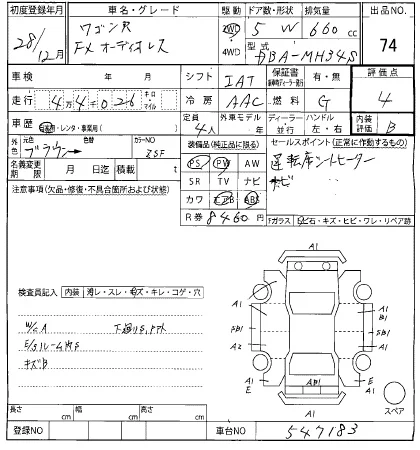 初度登録年月 車名・グレード 駆動 ドア数・形状 排気量 出品NO.
28/12月 ワゴンR 2WD 5 W 660cc
FX オーディオレス 4WD 型式 DBA-MH34S 74
車検 年 月 シフト IAT 保証書 有・無 評価点
走行 4万4千026 キロ マイル 冷房 AAC 燃料 G 4
車歴 自家用・レンタ・事業用( ) 定員 4人 外車モデル 年 ディーラー 並行 ハンドル 左・右 内装評価 B
外色 元色 ブラウン 色替 カラーNO ZSF 装備品(純正品に限る) セールスポイント(正常に作動するもの)
名義変更期限 月 日 積載 t PS PW AW 運転席シートヒーター
注意事項(欠品・修復・不具合箇所および状態) SR TV ナビ ナビ
カワ エアB ABS
R券 8460円 Fガラス 飛石・キズ・ヒビ・ワレ・リペア跡
A1
検査員記入 内装 汚レ・スレ・キズ・キレ・コゲ・穴
A1 A1
W/C A
5B1 5B1
A2 A1
キズB
A1 E AB1 E A1
A1 スペア
長さ cm 幅 cm 高さ cm
登録NO 車台NO 547183